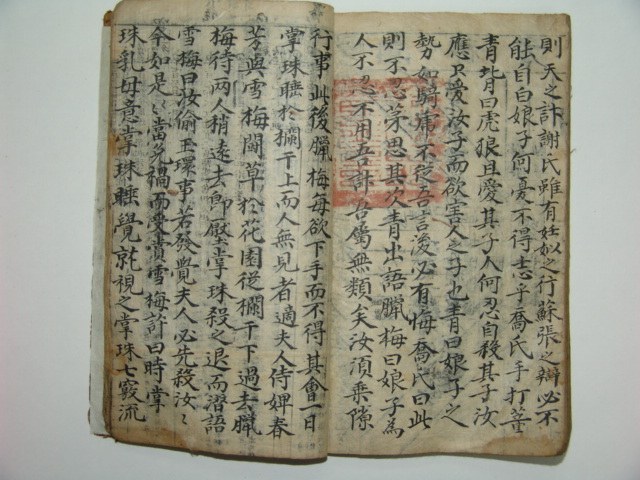 則天之計謝氏雖有妊姒之行蘇張之辯必不
能自白娘子何憂不得志乎喬氏手打董
青背曰虎狼且愛其子人何忍自殺其子汝
應只愛汝子而欲害人之子也青曰娘子之
勢如騎虎不從吾言後必有悔喬氏曰此
則不忍第思其次青出語臘梅曰娘子為
人不忍不用吾計吾屬無類矣汝須乗隙
行事此後臘梅每欲下手而不得其會一日
掌珠睡於欄干上而人無見者適夫人侍婢春
芳與雪梅鬪草於花園從欄干下過去臘
梅待兩人稍遠去即壓掌珠殺之退而潛語
雪梅曰汝偷玉環事若發覺夫人必先殺汝〻
今如是〻當免禍而受賞雪梅許曰時掌
珠乳母意掌珠睡覺就視之掌珠七竅流